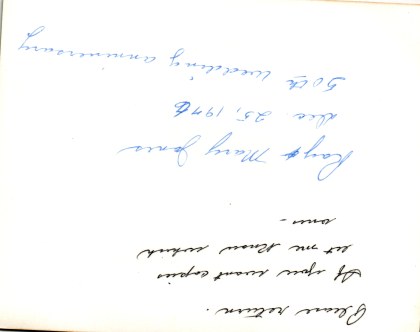 Please return.
If you want copies
let me know which
ones -
Ray & Mary Jones
Dec 25, 1976
50th Wedding anniversary